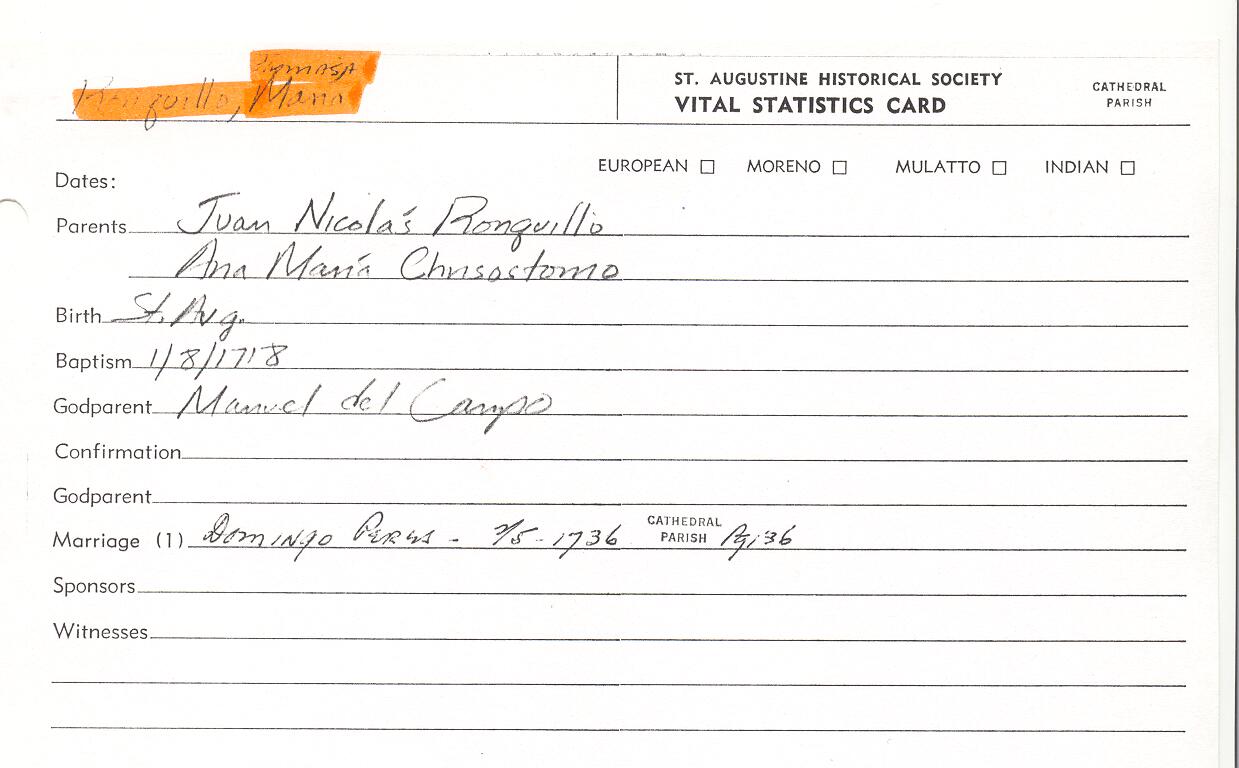 Tomasa
Ronquillo, Maria
ST. AUGUSTINE HISTORICAL SOCIETY
VITAL STATISTICS CARD
CATHEDRAL
PARISH
EUROPEAN ☐ MORENO ☐ MULATTO ☐ INDIAN ☐
Dates:
Parents Juan Nicolás Ronquillo
Ana María Chrisostomo
Birth St. Aug.
Baptism 1/8/1718
Godparent Manuel del Campo
Confirmation
Godparent
Marriage (1) Domingo - 1736 CATHEDRAL PARISH Pg 136
Sponsors
Witnesses